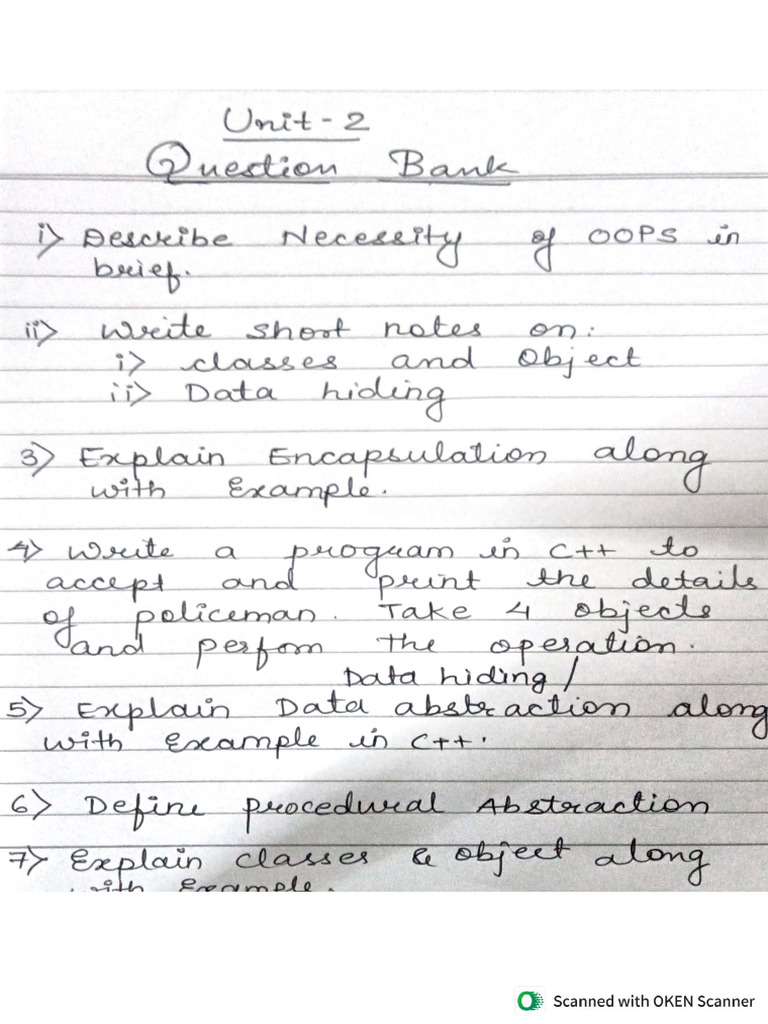 Unit-2
Question Bank
i) Describe Necessity of OOPS in
brief.
ii) Write short notes on:
i) classes and Object
ii) Data hiding
3) Explain Encapsulation along
with Example.
4) Write a program in C++ to
accept and print the details
of policeman. Take 4 objects
and perfom the operation.
Data hiding /
5) Explain Data abstraction along
with Example in C++.
6) Define procedural Abstraction
7) Explain classes & object along
with Example.
Scanned with OKEN Scanner